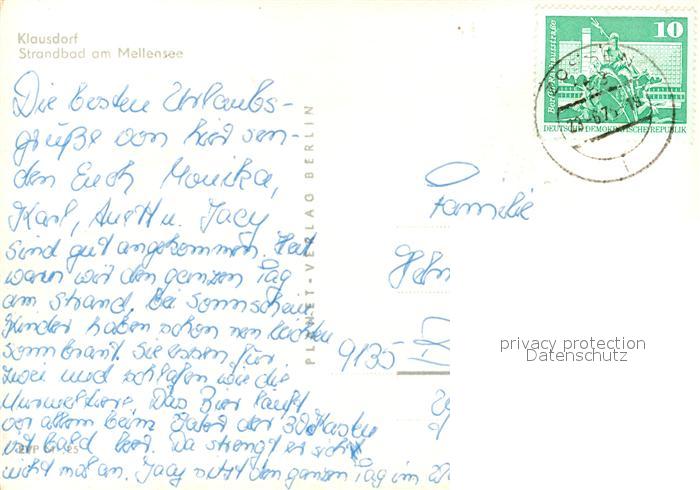 Klausdorf
Strandbad am Mellensee
Die besten Urlaubs-
grüße von hier sen-
den Euch Monika,
Karl, u. Jacy
sind gut angekommen. Heut
waren wir den ganzen Tag
am Strand, bei Sonnenschein
Kinder haben schon nen leichten
Sonnbrant. Sie essen für
zwei und schlafen wie die
Murmeltiere. Das Bier läuft
vor allem beim Vater der 30 Kasten
ist bald leer. Da strengt er sich
nicht mal an. Jacy sitzt den ganzen Tag im
PLANET-VERLAG BERLIN
10
DEUTSCHE DEMOKRATISCHE REPUBLIK
Familie
9135
privacy protection
Datenschutz